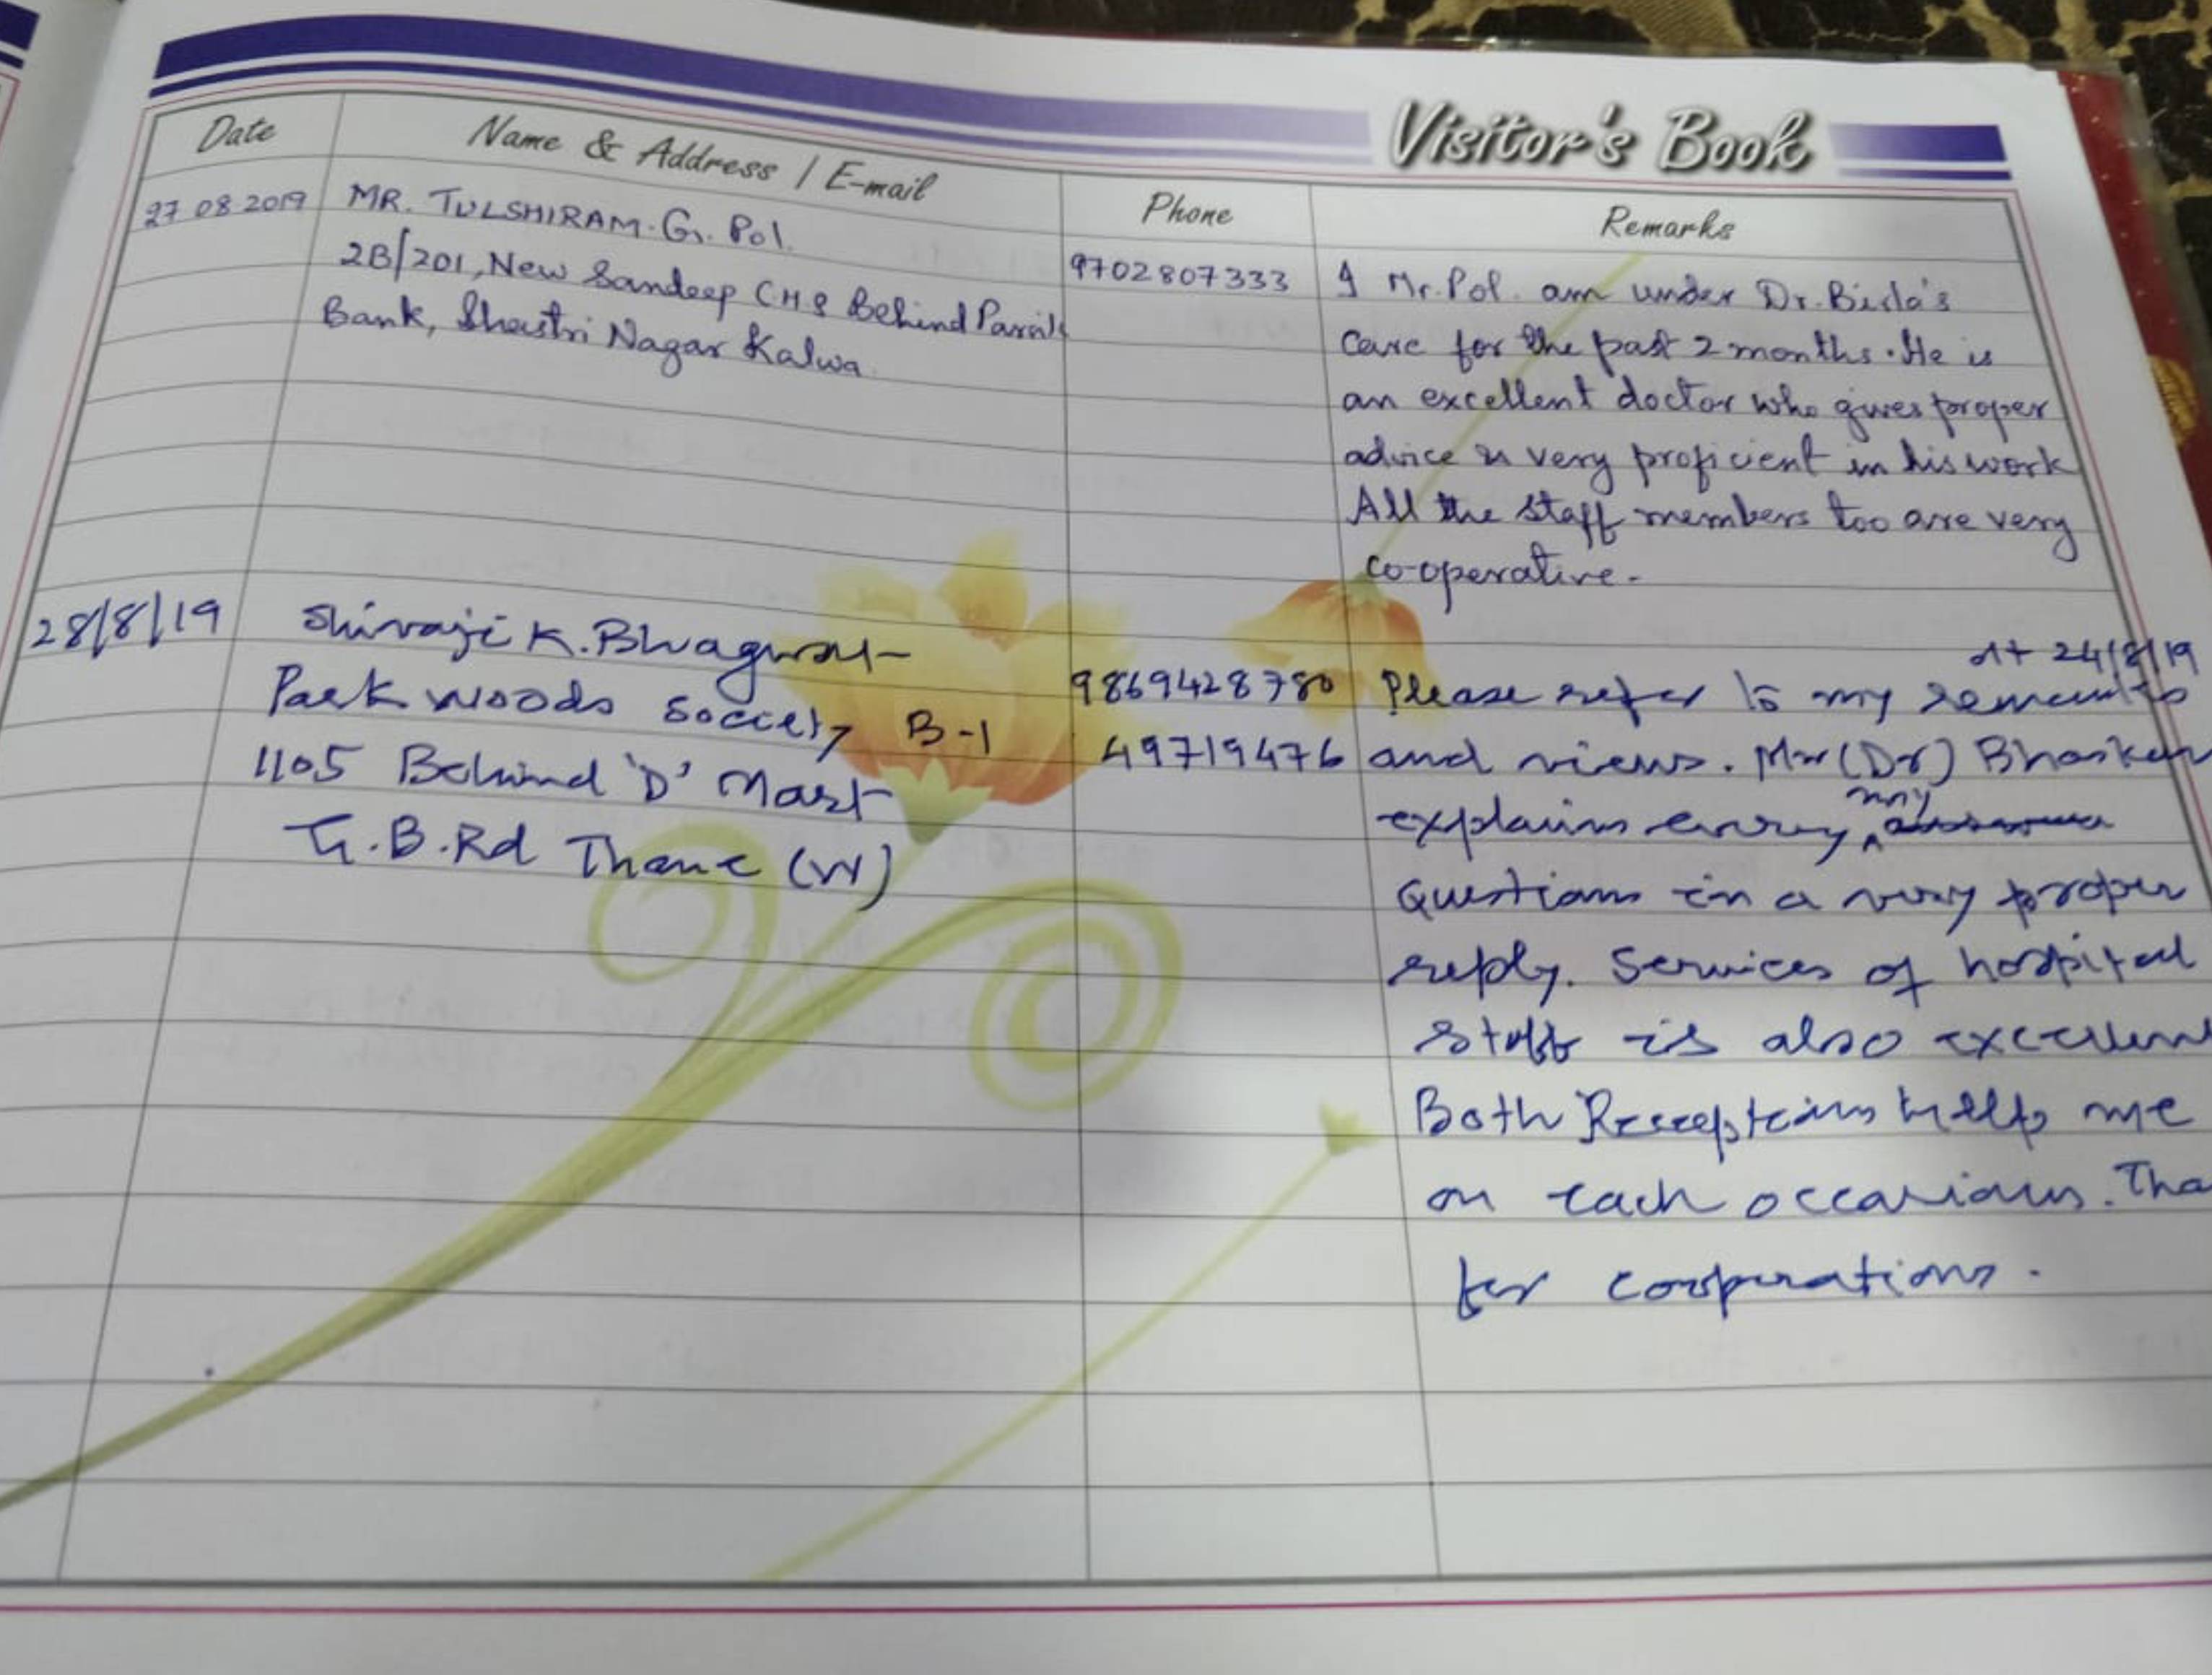 Visitor's Book
Date
Name & Address / E-mail
Phone
Remarks
27 08 2019
MR. TULSHIRAM. G. Pol.
2B/201, New Sandeep CHS Behind Parsik
Bank, Shastri Nagar Kalwa
9702807333
I Mr. Pol. am under Dr. Birla's
care for the past 2 months. He is
an excellent doctor who gives proper
advice & very proficient in his work
All the staff members too are very
co-operative.
28/8/19
Shivaji K. Bhagwat
Park woods society B-1
1105 Behind 'D' Mart
G.B.Rd Thane (W)
9869428780
49719476
dt 24/8/19
Please refer to my remarks
and views. Mr (Dr) Bhaskar
explains every my
Questions in a very proper
reply. Services of hospital
staff is also excellent
Both Receptions help me
on each occasions. Tha
for cooperations.